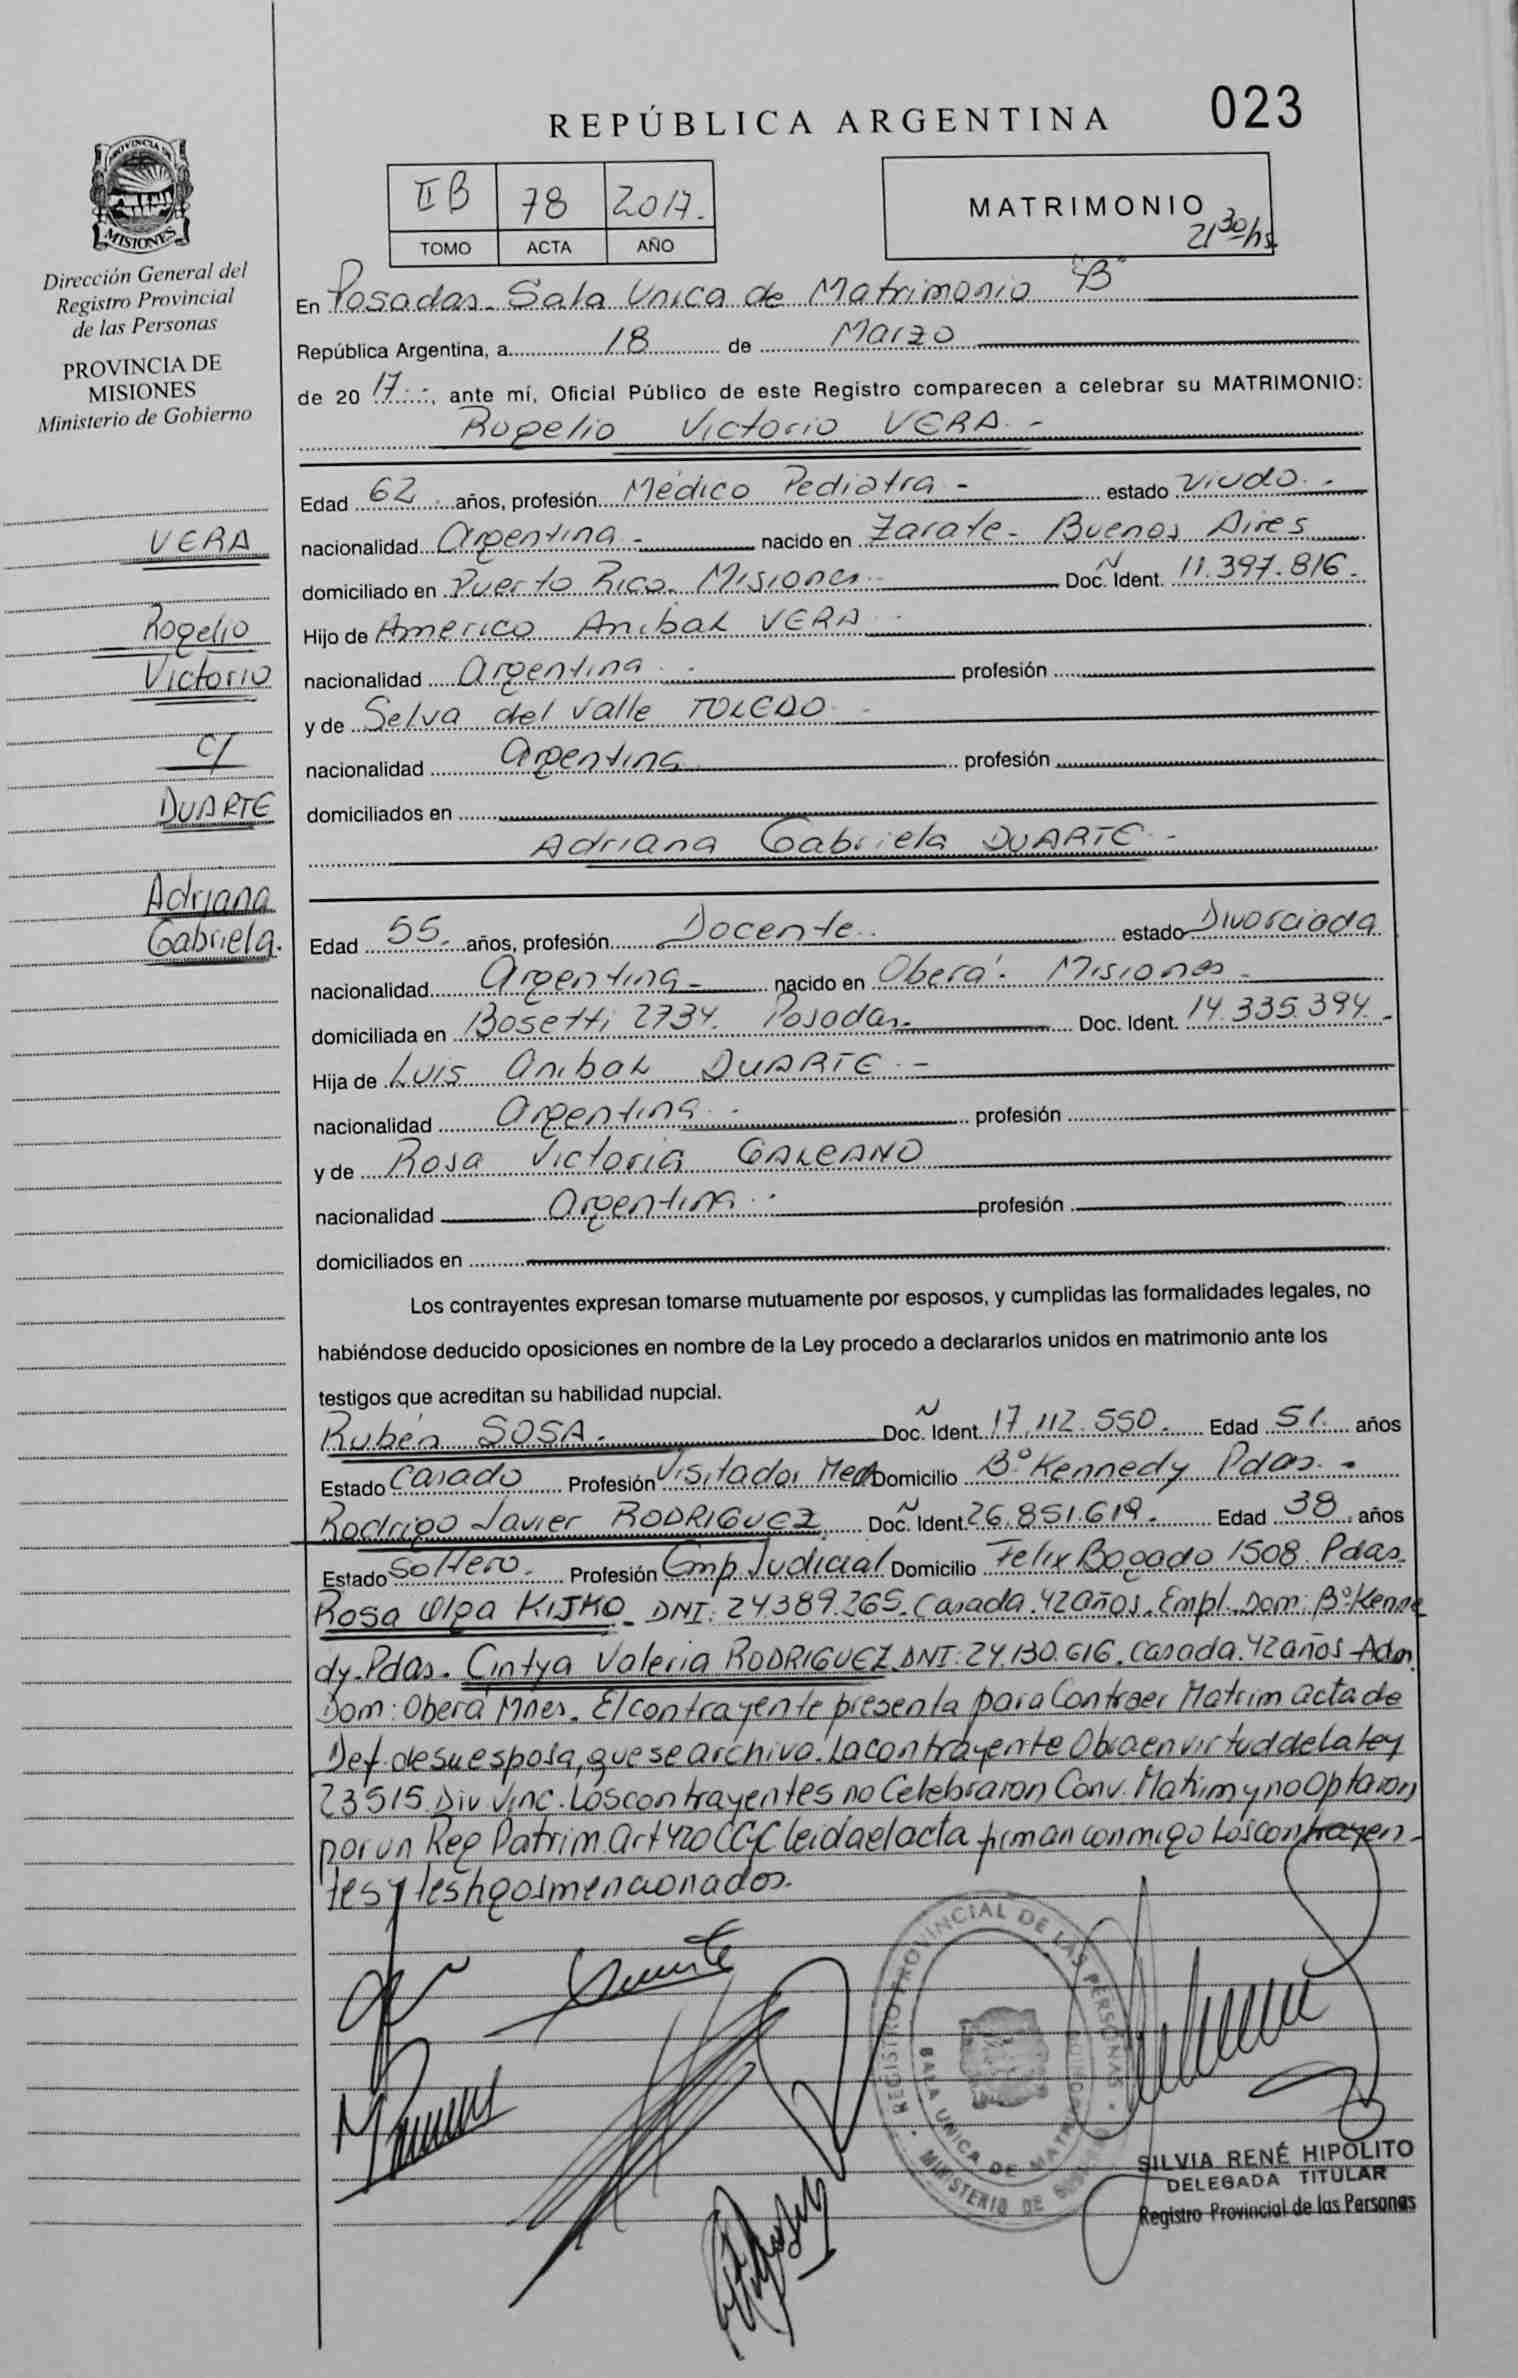 REPÚBLICA ARGENTINA 023
II B 78 2017.
TOMO ACTA AÑO
MATRIMONIO
21 30 hs
PROVINCIA DE
MISIONES
Dirección General del
Registro Provincial
de las Personas
PROVINCIA DE
MISIONES
Ministerio de Gobierno
VERA
Rogelio
Victorio
c/
DUARTE
Adriana
Gabriela.
En Posadas - Sala Unica de Matrimonio "B"
República Argentina, a 18 de Marzo
de 20 17.-, ante mí, Oficial Público de este Registro comparecen a celebrar su MATRIMONIO:
Rogelio Victorio VERA.-
Edad 62. años, profesión Médico Pediatra - estado Viudo.-
nacionalidad Argentina - nacido en Zarate - Buenos Aires
domiciliado en Puerto Rico. Misiones.- Doc. Ñ Ident. 11.397.816.-
Hijo de Americo Anibal VERA.-
nacionalidad Argentina.- profesión
y de Selva del Valle TOLEDO.-
nacionalidad Argentina profesión
domiciliados en
Adriana Gabriela DUARTE.-
Edad 55. años, profesión Docente. estado Divorciada
nacionalidad Argentina - nacido en Oberá. Misiones -
domiciliada en Bosetti 2734. Posadas. Doc. Ident. 14.335.394.-
Hija de Luis Anibal DUARTE.-
nacionalidad Argentina.- profesión
y de Rosa Victoria GALEANO
nacionalidad Argentina.- profesión
domiciliados en
Los contrayentes expresan tomarse mutuamente por esposos, y cumplidas las formalidades legales, no
habiéndose deducido oposiciones en nombre de la Ley procedo a declararlos unidos en matrimonio ante los
testigos que acreditan su habilidad nupcial.
Rubén SOSA. Doc. Ñ Ident. 17.112.550. Edad 51. años
Estado Casado Profesión Visitador Med Domicilio Bº Kennedy Pdas.-
Rodrigo Javier RODRIGUEZ. Doc. Ñ Ident. 26.851.619. Edad 38 años
Estado Soltero. Profesión Emp. Judicial Domicilio Felix Bogado 1508. Pdas.
Rosa Olga KIJKO. DNI: 24.389.265. Casada. 42 años. Empl. Dom: Bº Kenne
dy. Pdas. Cintya Valeria RODRIGUEZ. DNI: 24.130.616. Casada. 42 años Adm.
Dom: Oberá Mnes. El contrayente presenta para Contraer Matrim acta de
Def. de su esposa, que se archiva. La contrayente Obra en virtud de la Ley
23515 Div. Vinc. Los contrayentes no Celebraron Conv. Matrim y no Optaron
por un Reg Patrim. Art 420 CCyC leida el acta firman conmigo los contrayen-
tes y testigos mencionados.
Duarte
REGISTRO PROVINCIAL DE LAS PERSONAS
SALA UNICA DE MATRIMONIO
MINISTERIO DE GOBIERNO
SILVIA RENÉ HIPÓLITO
DELEGADA TITULAR
Registro Provincial de las Personas